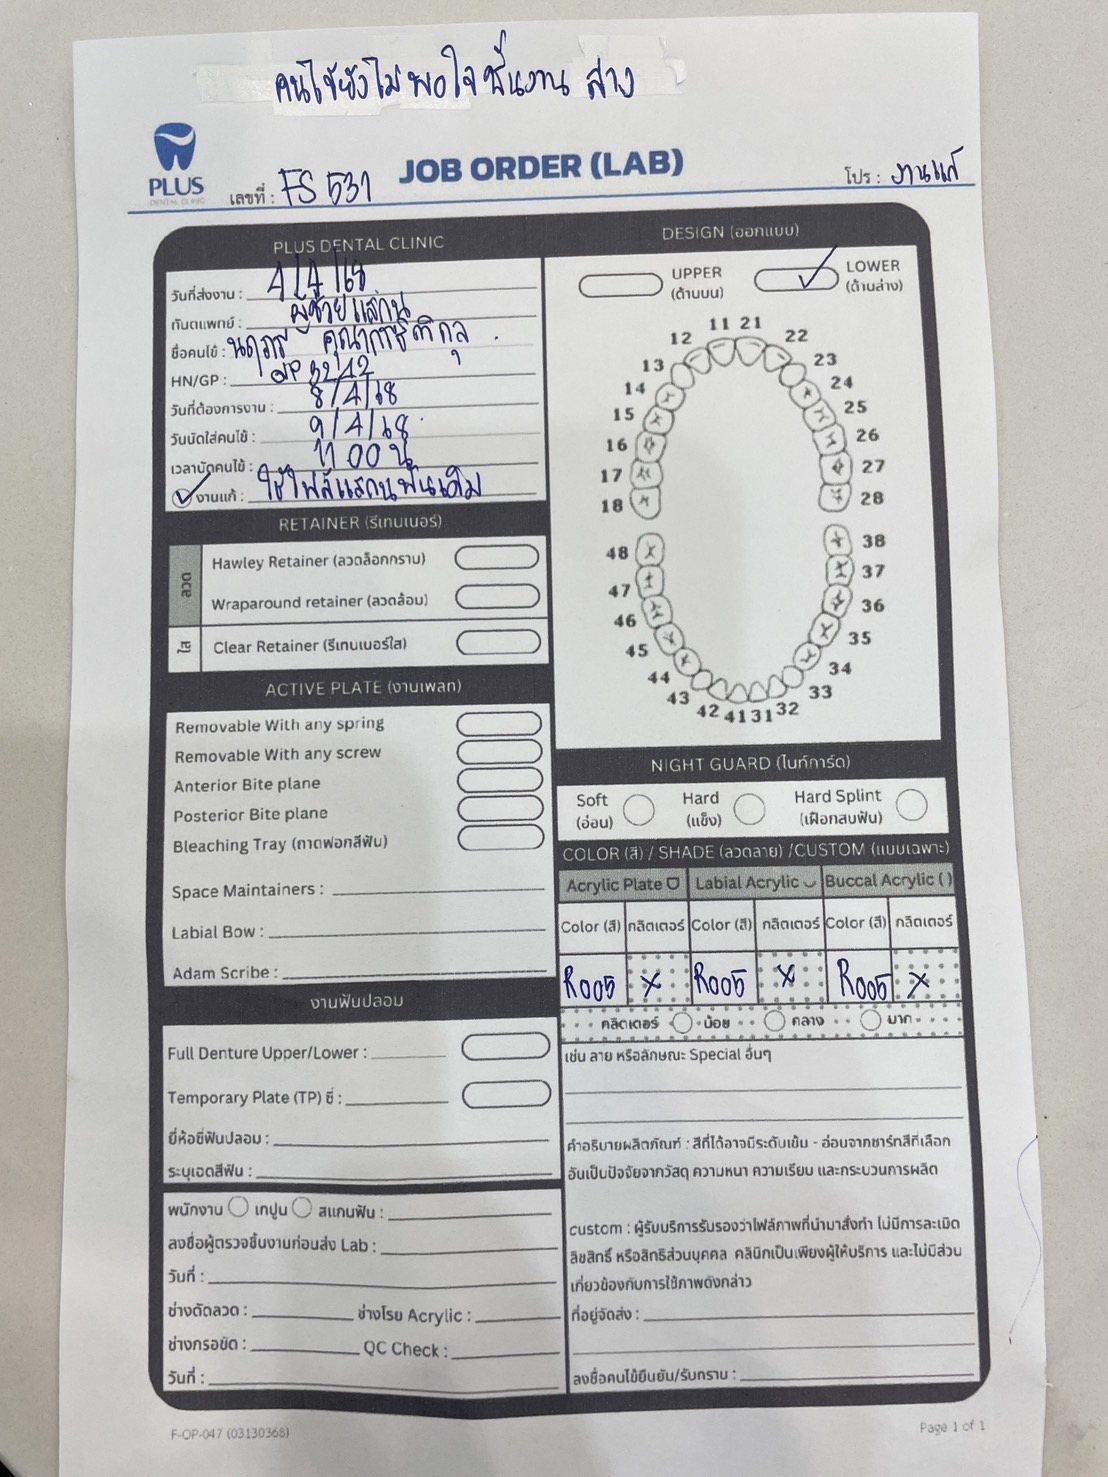 คนไข้ยังไม่พอใจชิ้นงาน ล่าง
PLUS
DENTAL CLINIC
เลขที่ : FS 531
JOB ORDER (LAB)
โปร : งานแก้
PLUS DENTAL CLINIC
วันที่ส่งงาน : 4/4/68
ทันตแพทย์ : ผู้ช่วยแสกน
ชื่อคนไข้ :
HN/GP : 3242
วันที่ต้องการงาน : 8/4/68
วันนัดใส่คนไข้ : 9/4/68
เวลานัดคนไข้ : 11 00 น
งานแก้ : ใช้ไฟล์แสกนฟันเดิม
RETAINER (รีเทนเนอร์)
ลวด
Hawley Retainer (ลวดล็อกกราม)
Wraparound retainer (ลวดล้อม)
ใส
Clear Retainer (รีเทนเนอร์ใส)
ACTIVE PLATE (งานเพลท)
Removable With any spring
Removable With any screw
Anterior Bite plane
Posterior Bite plane
Bleaching Tray (ถาดฟอกสีฟัน)
Space Maintainers :
Labial Bow :
Adam Scribe :
งานฟันปลอม
Full Denture Upper/Lower :
Temporary Plate (TP) ซี่ :
ยี่ห้อซี่ฟันปลอม :
ระบุเฉดสีฟัน :
พนักงาน เทปูน สแกนฟัน :
ลงชื่อผู้ตรวจชิ้นงานก่อนส่ง Lab :
วันที่ :
ช่างดัดลวด : ช่างโรย Acrylic :
ช่างกรอขัด : QC Check :
วันที่ :
DESIGN (ออกแบบ)
UPPER
(ด้านบน)
LOWER
(ด้านล่าง)
11 21
12 22
13 23
14 24
15 25
16 26
17 27
18 28
48 38
47 37
46 36
45 35
44 34
43 33
42 41 31 32
NIGHT GUARD (ไนท์การ์ด)
Soft
(อ่อน)
Hard
(แข็ง)
Hard Splint
(เฝือกสบฟัน)
COLOR (สี) / SHADE (ลวดลาย) /CUSTOM (แบบเฉพาะ)
Acrylic Plate Labial Acrylic Buccal Acrylic ( )
Color (สี) กลิตเตอร์ Color (สี) กลิตเตอร์ Color (สี) กลิตเตอร์
R005 X R005 X R005 X
กลิตเตอร์ น้อย กลาง มาก
เช่น ลาย หรือลักษณะ Special อื่นๆ
คำอธิบายผลิตภัณฑ์ : สีที่ได้อาจมีระดับเข้ม - อ่อนจากชาร์ทสีที่เลือก
อันเป็นปัจจัยจากวัสดุ ความหนา ความเรียบ และกระบวนการผลิต
custom : ผู้รับบริการรับรองว่าไฟล์ภาพที่นำมาสั่งทำ ไม่มีการละเมิด
ลิขสิทธิ์ หรือสิทธิส่วนบุคคล คลินิกเป็นเพียงผู้ให้บริการ และไม่มีส่วน
เกี่ยวข้องกับการใช้ภาพดังกล่าว
ที่อยู่จัดส่ง :
ลงชื่อคนไข้ยืนยัน/รับทราบ :
F-OP-047 (03130368)
Page 1 of 1